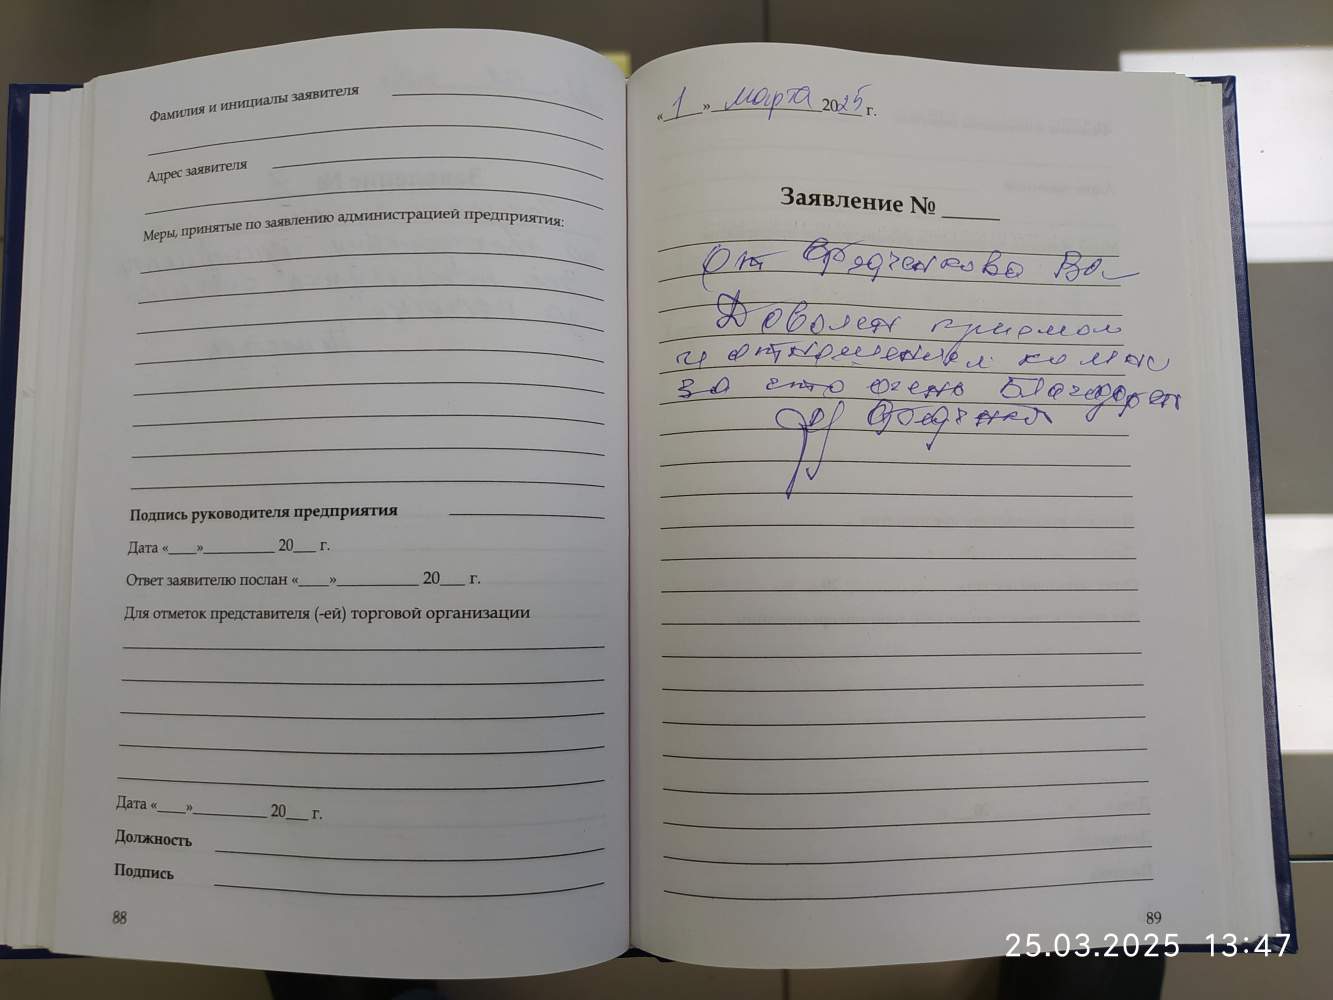 Фамилия и инициалы заявителя
Адрес заявителя
Меры, принятые по заявлению администрацией предприятия:
Подпись руководителя предприятия
Дата «____»__________ 20___ г.
Ответ заявителю послан «____»____________ 20___ г.
Для отметок представителя (-ей) торговой организации
Дата «____»__________ 20___ г.
Должность
Подпись
88
«1» марта 2025 г.
Заявление № ____
От
Доволен приемом
и отношением ко мне
за что очень благодарен
89
25.03.2025 13:47